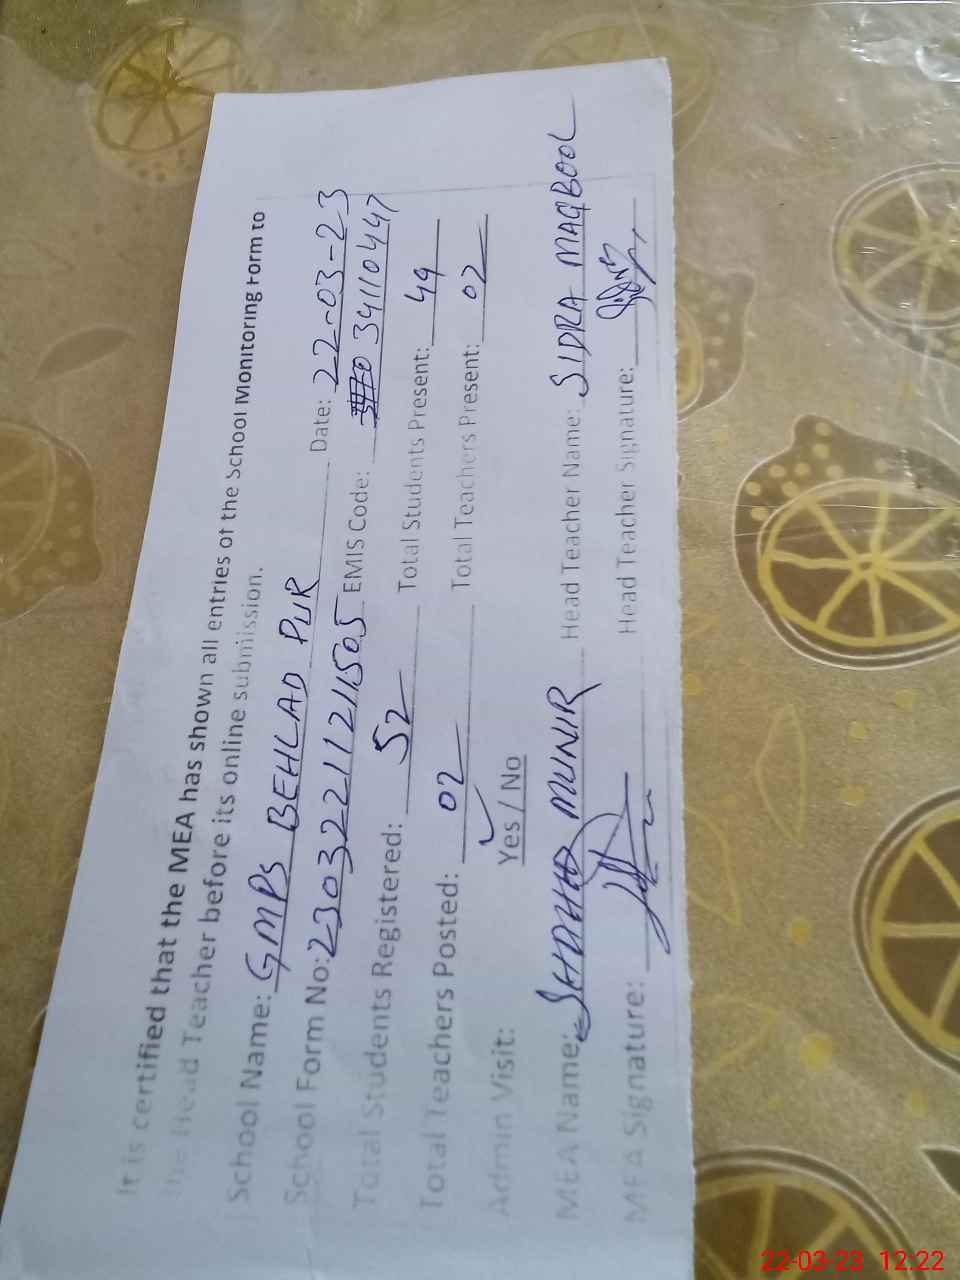 It is certified that the MEA has shown all entries of the School Monitoring Form to
the Head Teacher before its online submission.
School Name: GMPS BEHLAD PUR Date: 22-03-23
School Form No: 2303221121505 EMIS Code: 34110447
Total Students Registered: 52 Total Students Present: 49
Total Teachers Posted: 02 Total Teachers Present: 02
Admin Visit: Yes / No
MEA Name: MUNIR Head Teacher Name: SIDRA MAQBOOL
MEA Signature: Head Teacher Signature:
22-03-23 12:22